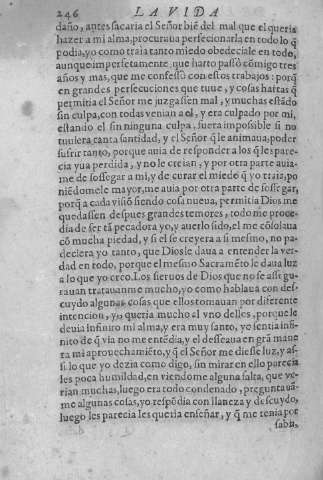 246 LA VIDA
daño, antes sacaria el Señor biẽ del mal que el queria
hazer a mi alma, procuraua perfecionarla en todo lo q̃
podia, yo como traia tanto miedo obedeciale en todo,
aunque imperfetamente, que harto passò cõmigo tres
años y mas, que me confessò con estos trabajos: porq̃
en grandes persecuciones que tuue, y cosas hartas q̃
permitia el Señor me juzgassen mal, y muchas estãdo
sin culpa, con todas venian a el, y era culpado por mi,
estando el sin ninguna culpa, fuera impossible si no
tuuiera tanta santidad, y el Señor q̃ le animaua, poder
sufrir tanto, porque auia de responder a los q̃ les pare-
cia yua perdida, y no le creian, y por otra parte auia-
me de sossegar a mi, y de curar el miedo q̃ yo traia, po
niẽdomele mayor, me auia por otra parte de sossegar,
porq̃ a cada visiõ siendo cosa nueua, permitia Dios me
quedassen despues grandes temores, todo me proce-
dia de ser tã pecadora yo, y auerlo sido, el me cõsolaua
cõ mucha piedad, y si el se creyera a si mesmo, no pa-
deciera yo tanto, que Dios le daua a entender la ver-
dad en todo, porque el mesmo Sacramẽto le daua luz
a lo que yo creo. Los sieruos de Dios que no se assegu-
rauan tratauanme mucho, yo como hablaua con des-
cuydo algunas cosas que ellos tomauan por diferente
intencion, yo queria mucho el vno dellos, porque le
deuia infiniro mi alma, y era muy santo, yo sentia infi-
nito de q̃ via no me entẽdia, y el desseaua en grã mane
ra mi aprouechamiẽto, y q̃ el Señor me diesse luz, y as-
si lo que yo dezia como digo, sin mirar en ello parecia
les poca humildad, en viendome alguna falta, que ve-
rian muchas, luego era todo condenado, preguntauã-
me algunas cosas, yo respõdia con llaneza y descuydo,
luego les parecia les queria enseñar, y q̃ me tenia por
sabia,